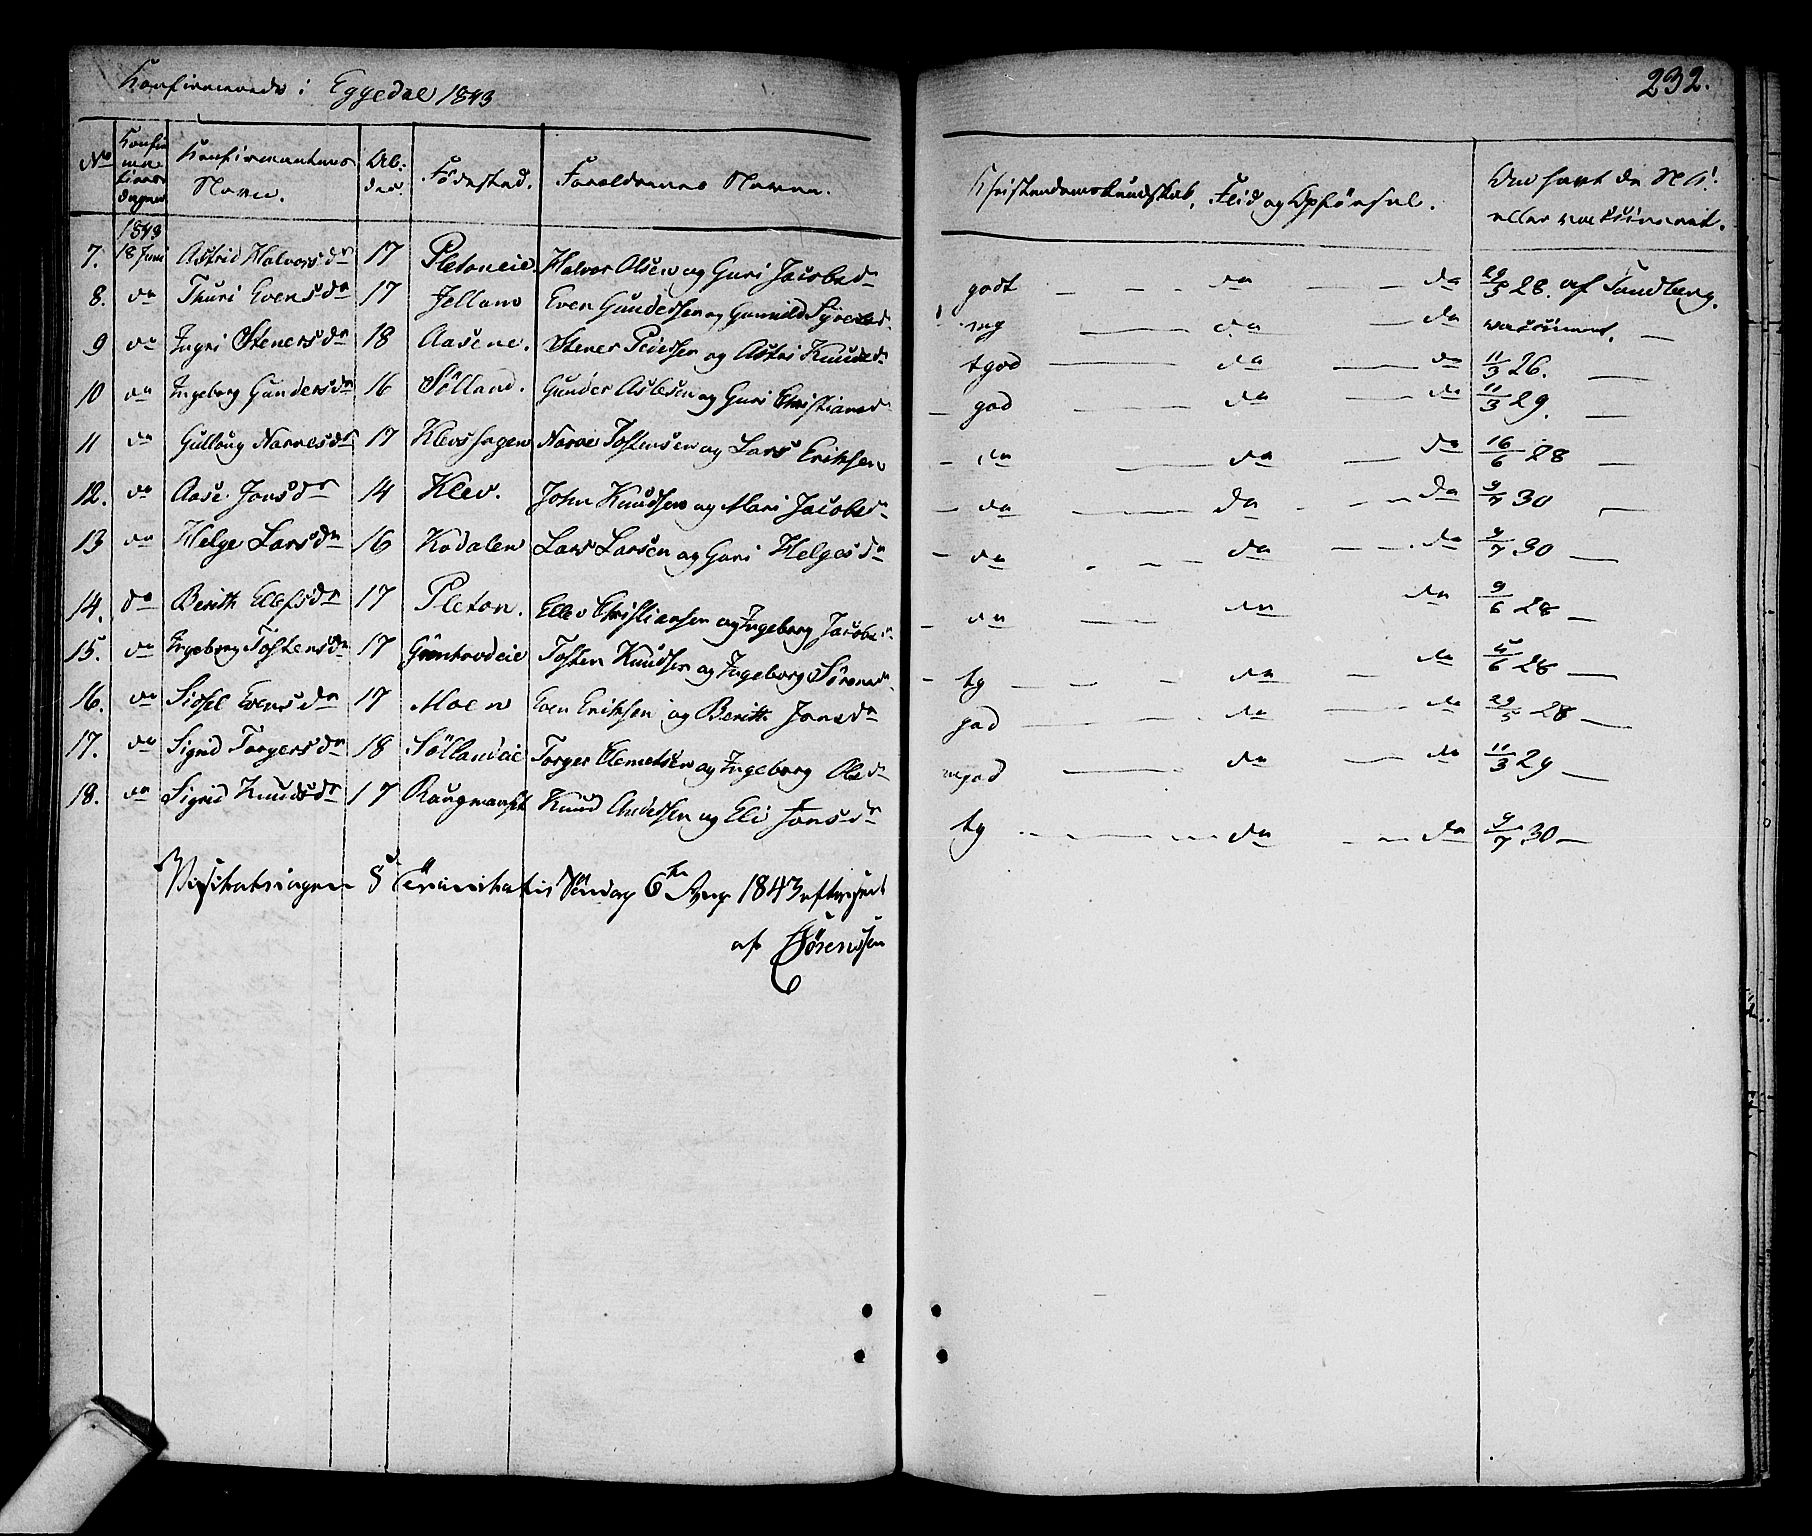 Konfirmerede i Eggedal 1843
232.
No Konfirmationsdagen Konfirmanternes Navne. Alder. Födested. Foreldrenes Navne. Christendomskundskab, Flid og Opförsel. Om havt de N. B. eller vaccineret.
1843
7. 18 Juni Astrid Halvorsdr 17 Pletaneie Halvor Olsen og Guri Jacobsd. godt — do — do 29/5 28. af Sandberg.
8. do Thuri Evensdr 17 Jelland Even Gundersen og Gunnild mg — do — do vaccineret. —
9 do Ingri Stenersdr 18 Aasene. Stener Pedersen og Astri Knudsd. tgod — do — do 11/3 26. —
10 do Ingeborg Gundersdr 16 Sölland. Gunder Aslesen og Guri Christiansd. — god — do — do 11/3 29. —
11 do Gullaug Narvesdr 17 Klevshagen Narve Tostensen og Lars Eriksen — do — do — do 16/6 28 —
12. do Aase Jonsdr 14 Klev. John Knudsen og Mari Jacobsd. — do — do — do 9/7 30 —
13 do Helge Larsdr 16 Kodalen Lars Larsen og Guri Helgesdr — do — do — do 9/7 30 —
14. do Berith Elefsdr 17 Pleton. Ellev Christiansen og Ingeborg Jacobsd. — do — do — do 9/6 28 —
15. do Ingeborg Tostensdr 17 Tosten Knudsen og Ingeborg Sörensd. — tg — do — do 28 —
16. do Sissel Evensdr 17 Moen Even Eriksen og Berith Jonsdr god — do — do 29/5 28 —
17. do Sigrid Torgersdr 18 Söllandeie Torger Clemetsen og Ingeborg Olsdr mgod — do — do 11/3 29 —
18. do Sigrid Knudsdr 17 Knud Andersen og Eli Jonsdr tg — do — do 9/7 30 —
Visitatsdagen 8 Trinitatis Söndag 6te Aug 1843 efterseet
af Sörenssen